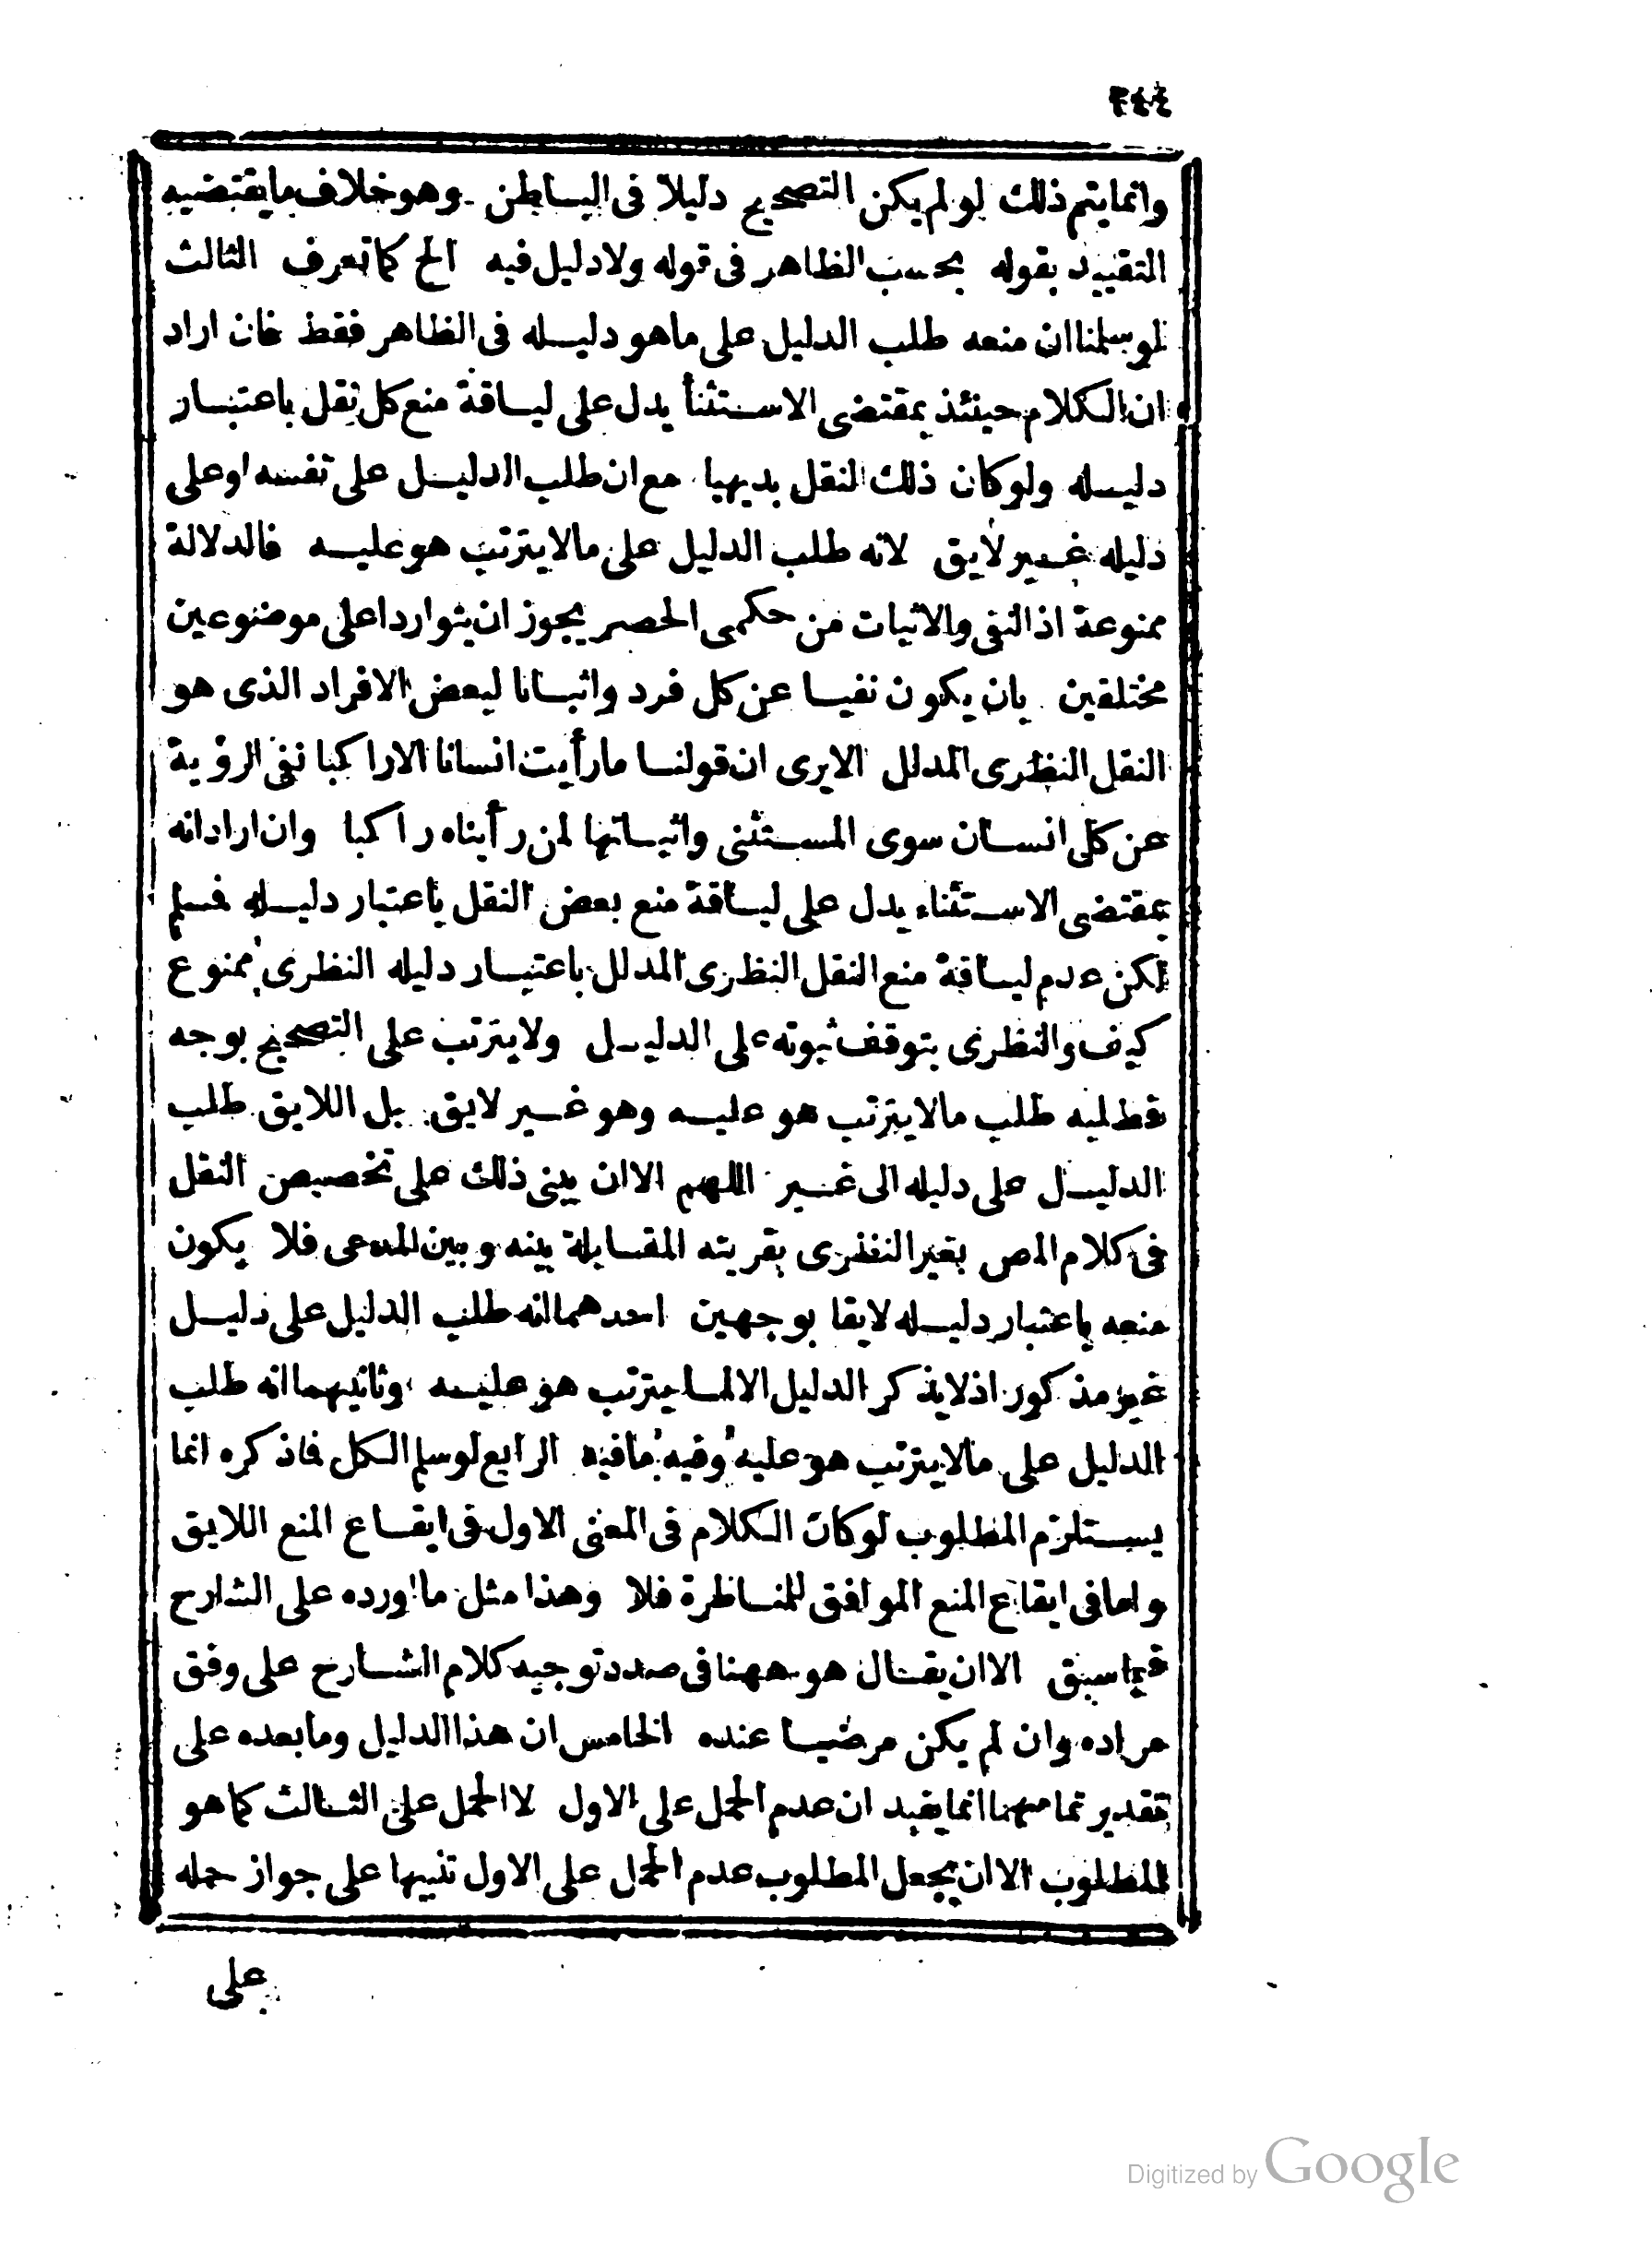 ٢٤٤
وانما يتم ذلك لو لم يكن التصحيح دليلا فى الباطن وهو خلاف ما يقتضيه
التقييد بقوله بحسب الظاهر فى قوله ولا دليل فيه الخ كما تعرف الثالث
لو سلمنا ان منعه طلب الدليل على ما هو دليله فى الظاهر فقط فان اراد
ان الكلام حينئذ بمقتضى الاستثنأ يدل على لياقة منع كل نقل باعتبار
دليله ولو كان ذلك النقل بديهيا مع ان طلب الدليل على نفسه او على
دليله غير لايق لانه طلب الدليل على ما لا يترتب هو عليه فالدلالة
ممنوعة اذ النفى والاثبات من حكمى الحصر يجوز ان يتواردا على موضوعين
مختلفين بان يكون نفيا عن كل فرد واثباتا لبعض الافراد الذى هو
النقل النظرى المدلل الا يرى ان قولنا ما رأيت انسانا الا راكبا نفى الرؤية
عن كل انسان سوى المستثنى واثباتها لمن رأيناه راكبا وان اراد انه
بمقتضى الاستثناء يدل على لياقة منع بعض النقل باعتبار دليله فسلم
لكن عدم لياقة منع النقل النظرى المدلل باعتبار دليله النظرى ممنوع
كيف والنظرى يتوقف ثبوته على الدليل ولا يترتب على التصحيح بوجه
فطلبه طلب ما لا يترتب هو عليه وهو غير لايق بل اللايق طلب
الدليل على دليله الى غير اللهم الا ان يبنى ذلك على تخصيص النقل
فى كلام المص بغير النظرى بقرينه المقابلة بينه وبين المدعى فلا يكون
منعه باعتبار دليله لايقا بوجهين احدهما انه طلب الدليل على دليل
غير مذكور اذ لا يذكر الدليل الا لما يترتب هو عليه وثانيهما انه طلب
الدليل على ما لا يترتب هو عليه وفيه ما فيه الرابع لو سلم الكل فما ذكره انما
يستلزم المطلوب لو كان الكلام فى المعنى الاول فى ايقاع المنع اللايق
واما فى ايقاع المنع الموافق للمناظرة فلا وهذا مثل ما اورده على الشارح
فيما سبق الا ان يقال هو ههنا فى صدد توجيه كلام الشارح على وفق
مراده وان لم يكن مرضيا عنده الخامس ان هذا الدليل وما بعده على
تقدير تمامهما انما يفيد ان عدم الحمل على الاول لا الحمل على الثالث كما هو
المطلوب الا ان يجعل المطلوب عدم الحمل على الاول تنبيها على جواز حمله
على
Digitized by Google